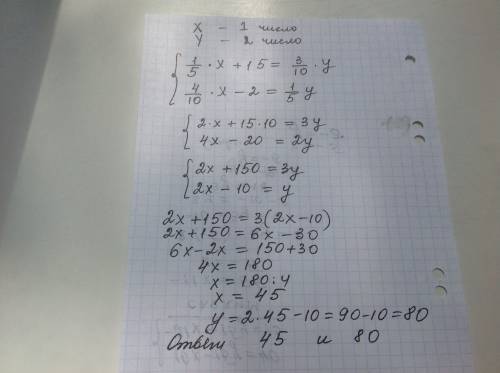 X - 1 число
Y - 2 число
{ 1/5 · x + 15 = 3/10 · y
4/10 · x - 2 = 1/5 y
{ 2 · x + 15 · 10 = 3y
4x - 20 = 2y
{ 2x + 150 = 3y
2x - 10 = y
2x + 150 = 3(2x - 10)
2x + 150 = 6x - 30
6x - 2x = 150 + 30
4x = 180
x = 180 : 4
x = 45
y = 2 · 45 - 10 = 90 - 10 = 80
Ответ 45 и 80